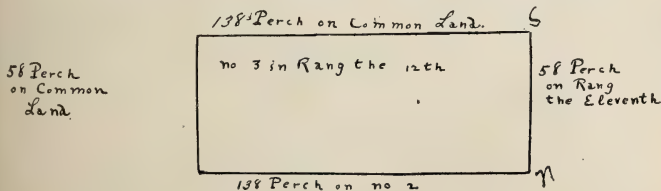 138 Perch on Common Land.
S
58 Perch
on Common
Land.
no 3 in Rang the 12th
58 Perch
on Rang
the Eleventh
138 Perch on no 2
n